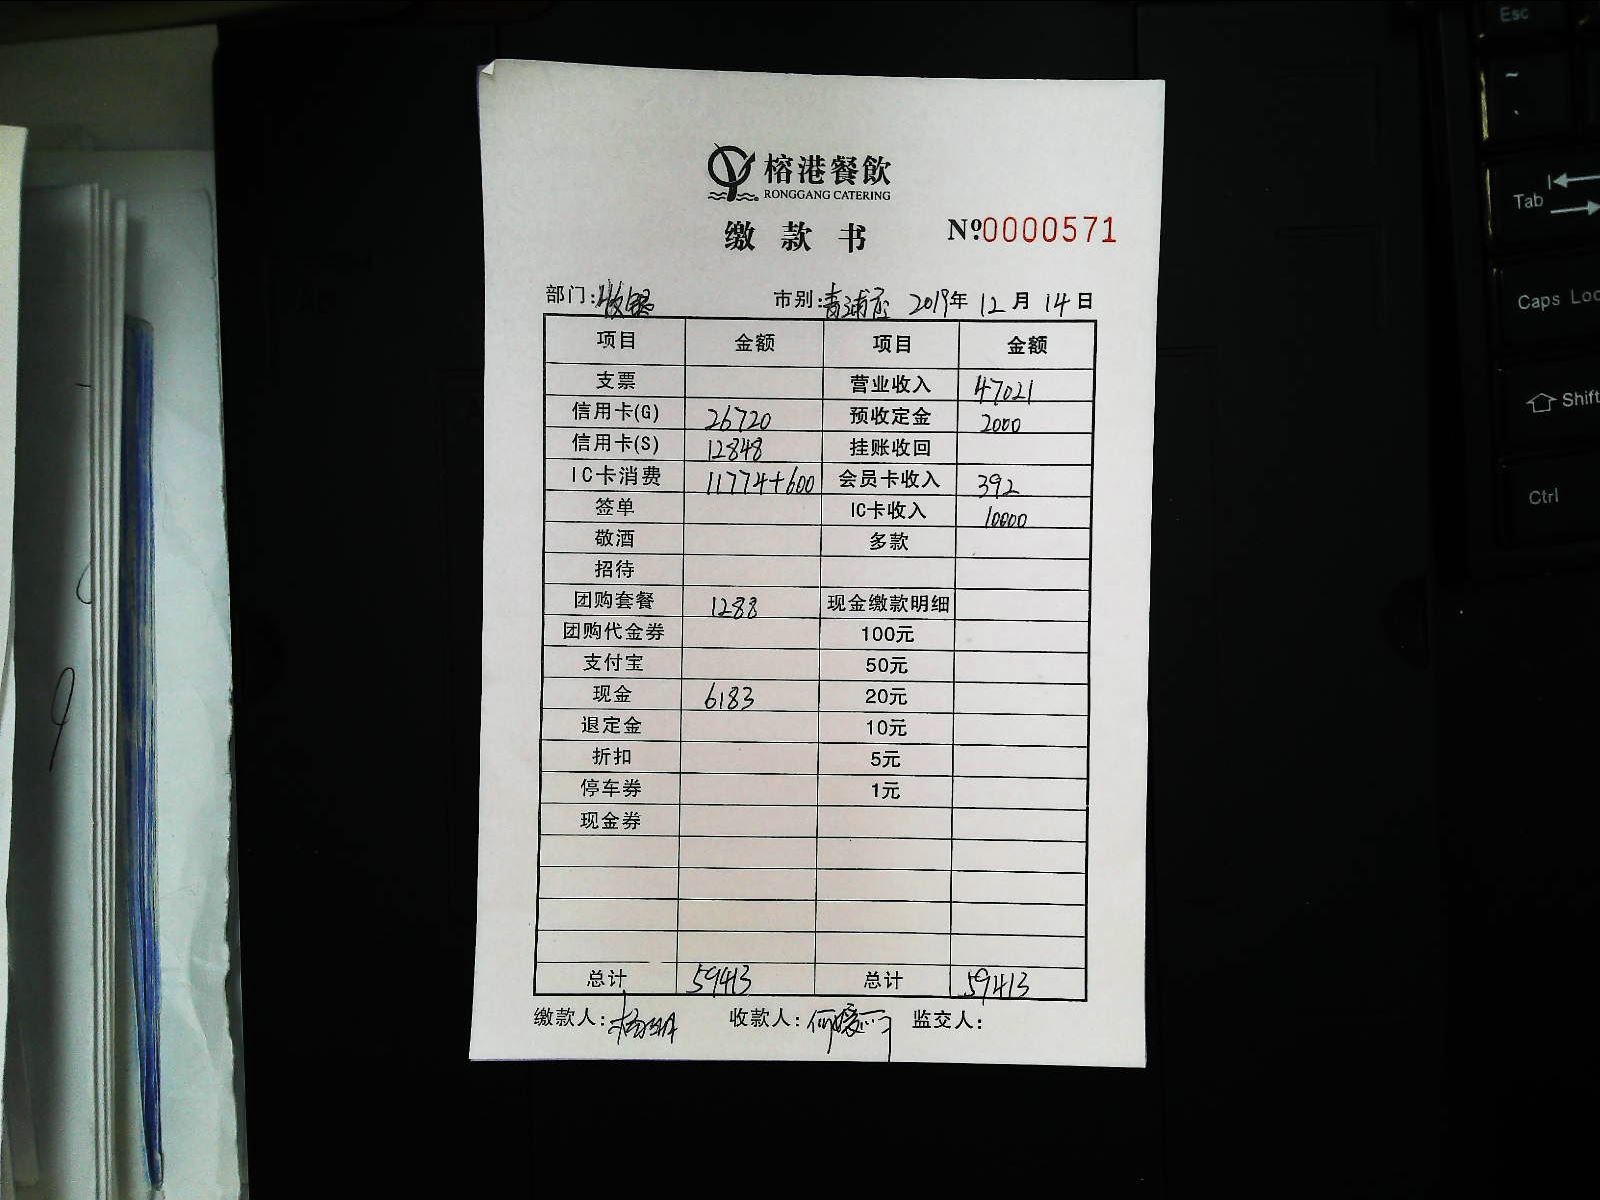 榕港餐飲
RONGGANG CATERING
缴款书 №0000571
部门:收银 市别:青浦店 2019年 12月 14日
项目 金额 项目 金额
支票 营业收入 47021
信用卡(G) 26720 预收定金 2000
信用卡(S) 12848 挂账收回
IC卡消费 11774+600 会员卡收入 392
签单 IC卡收入 10000
敬酒 多款
招待
团购套餐 1288 现金缴款明细
团购代金券 100元
支付宝 50元
现金 6183 20元
退定金 10元
折扣 5元
停车券 1元
现金券
总计 59413 总计 59413
缴款人: 收款人: 监交人:
Esc
~
Tab
Caps Loc
Shift
Ctrl